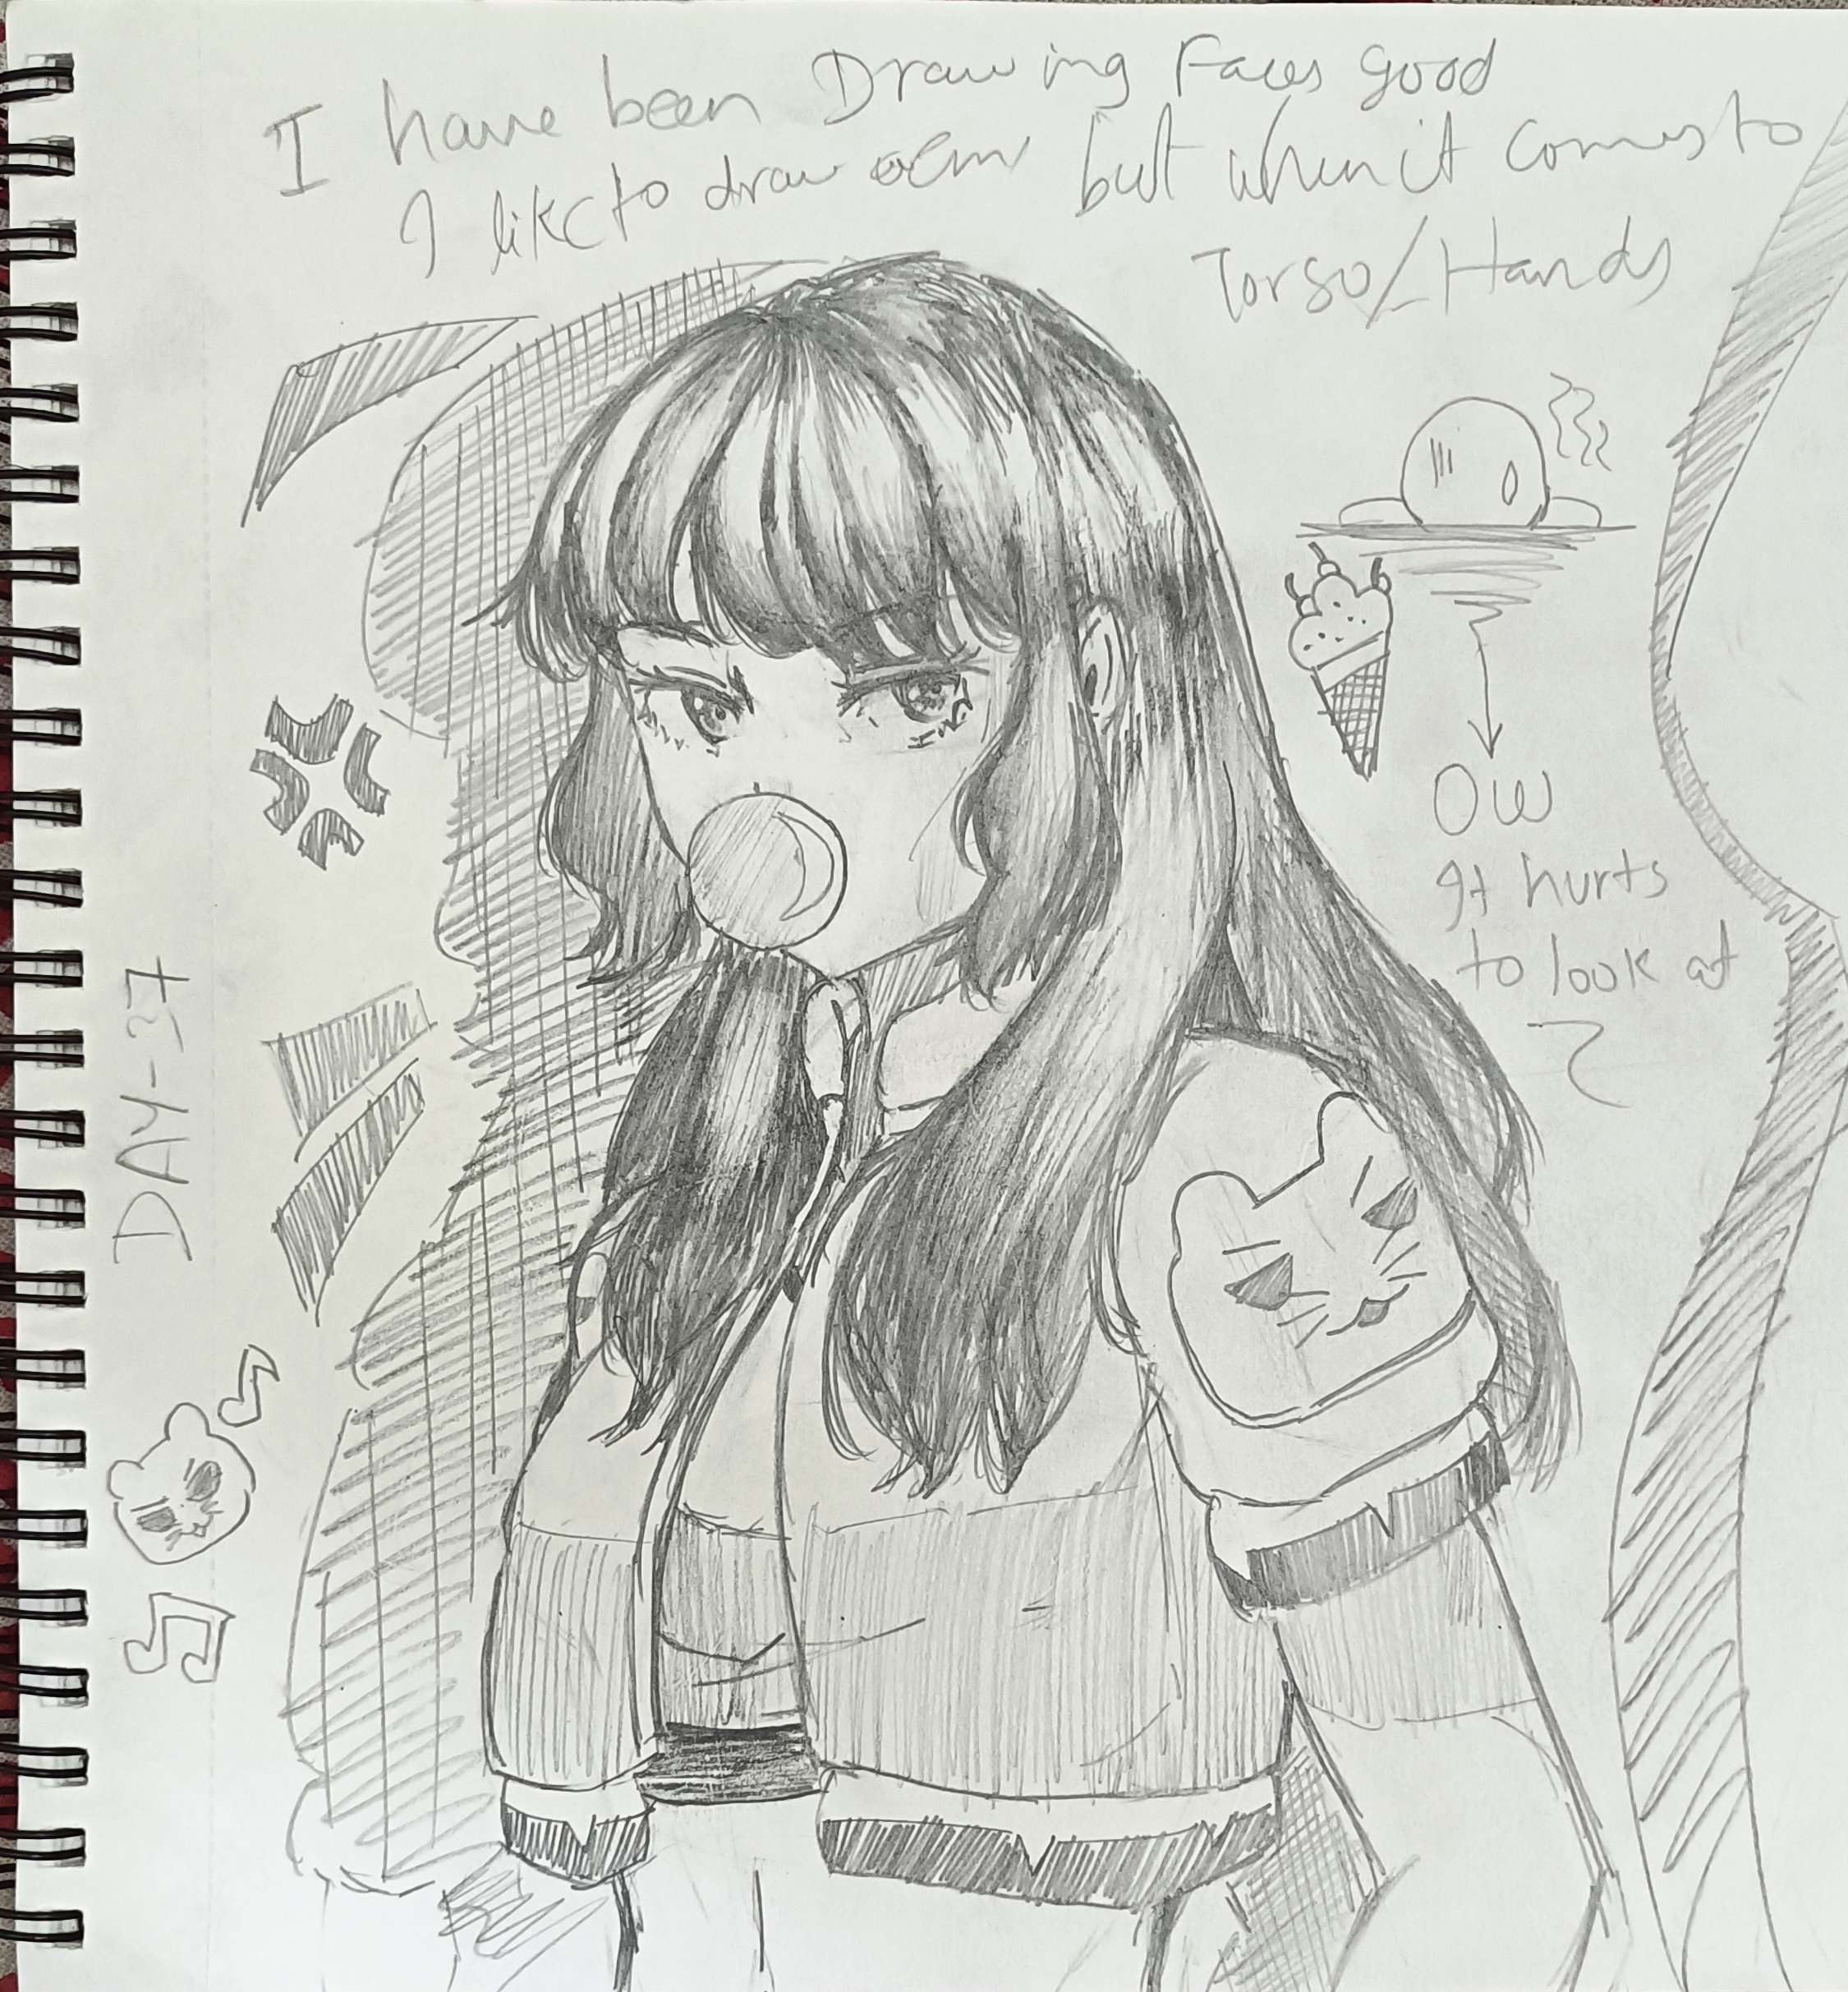 I have been Drawing Faces good
I like to draw em but when it comes to
Torso/Hands
OW
It hurts
to look at
DAY-37